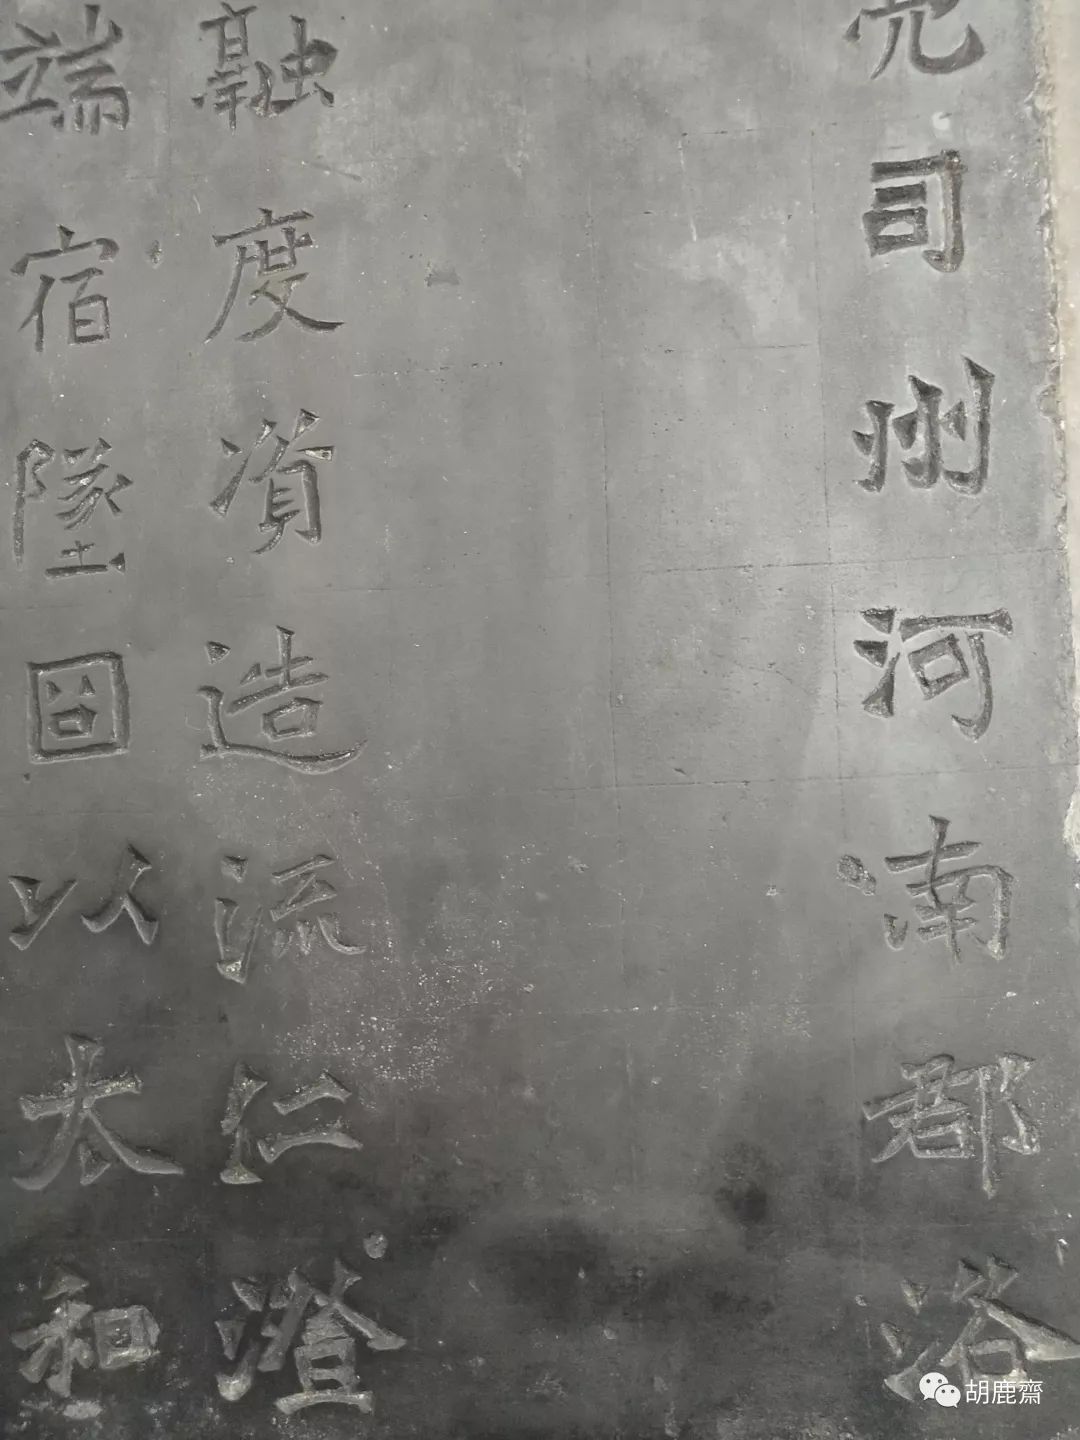 亮司州河南郡洛
融度資造流仁澄
端宿墜固以太和
胡鹿齋